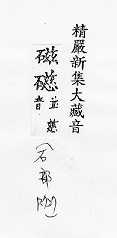 精嚴新集大藏音
磁慈並慈
礠音
(石部